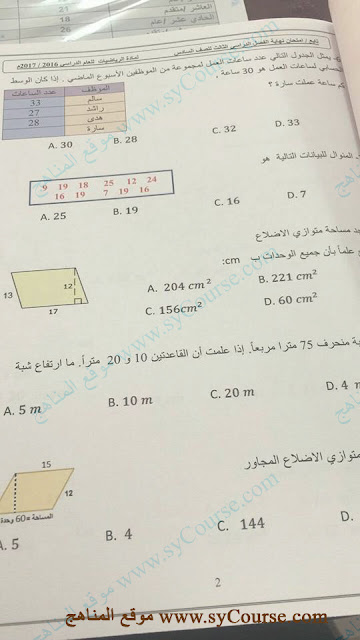 العاشر / متقدم
21
الحادي عشر / عام
18
26
تابع / امتحان نهاية الفصل الدراسي الثالث للصف السادس
لمادة الرياضيات للعام الدراسي 2016 / 2017م
يمثل الجدول التالي عدد ساعات العمل لمجموعة من الموظفين الأسبوع الماضي . إذا كان الوسط
الحسابي لساعات العمل هو 30 ساعة .
كم ساعة عملت سارة ؟
الموظف عدد الساعات
سالم 33
راشد 27
هدى 28
سارة
A. 30 B. 28 C. 32 D. 33
المنوال للبيانات التالية هو
9 19 18 25 12 24
16 19 7 19 16
A. 25 B. 19 C. 16 D. 7
مساحة متوازي الاضلاع
علماً بأن جميع الوحدات ب cm:
13 12 17
A. 204 cm² B. 221 cm²
C. 156cm² D. 60 cm²
منحرف 75 مترا مربعاً. إذا علمت أن القاعدتين 10 و 20 متراً. ما ارتفاع شبة
A. 5 m B. 10 m C. 20 m D. 4
متوازي الاضلاع المجاور
15
12
المساحة =60 وحدة
A. 5 B. 4 C. 144 D.
2
موقع المناهج www.syCourse.com